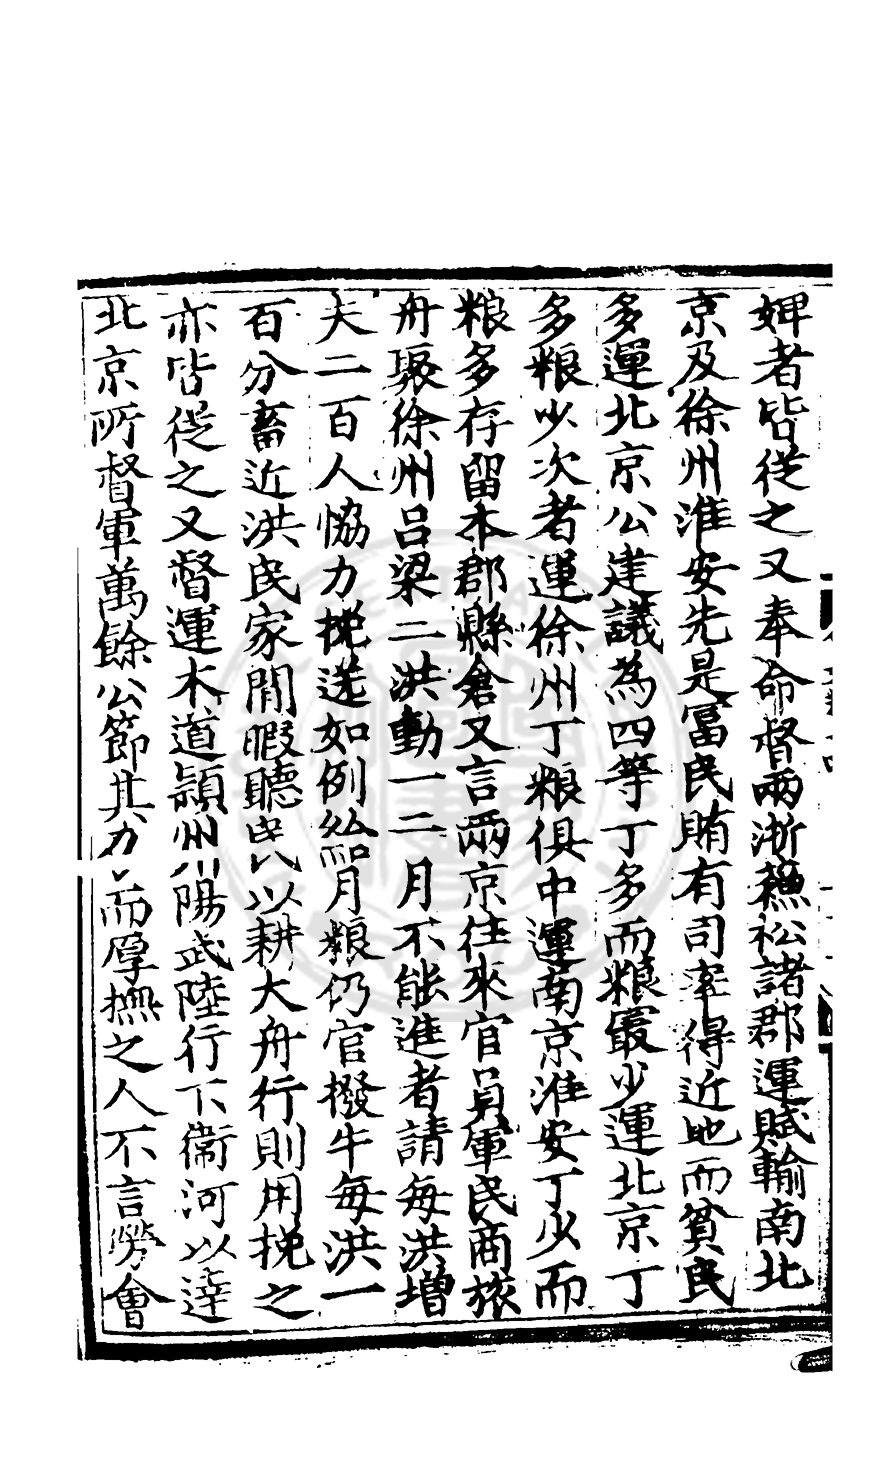 婢者皆從之又奉命督兩浙蘓松諸郡運賦輸南北
京及徐州淮安先是冨民賄有司率得近地而貧民
多運北京公建議為四等丁多而粮㝡少運北京丁
多粮少次者運徐州丁粮俱中運南京淮安丁少而
粮多存留本郡縣倉又言兩京往來官員軍民商旅
舟聚徐州吕梁二洪動一二月不能進者請每洪增
夫二百人恊力挽送如例給月粮仍官撥牛每洪一
百分畜近洪民家閒暇聽民以耕大舟行則用挽之
亦皆從之又督運木道頴州陽武陸行下衞河以達
北京所督軍萬餘公節其力而厚撫之人不言勞會